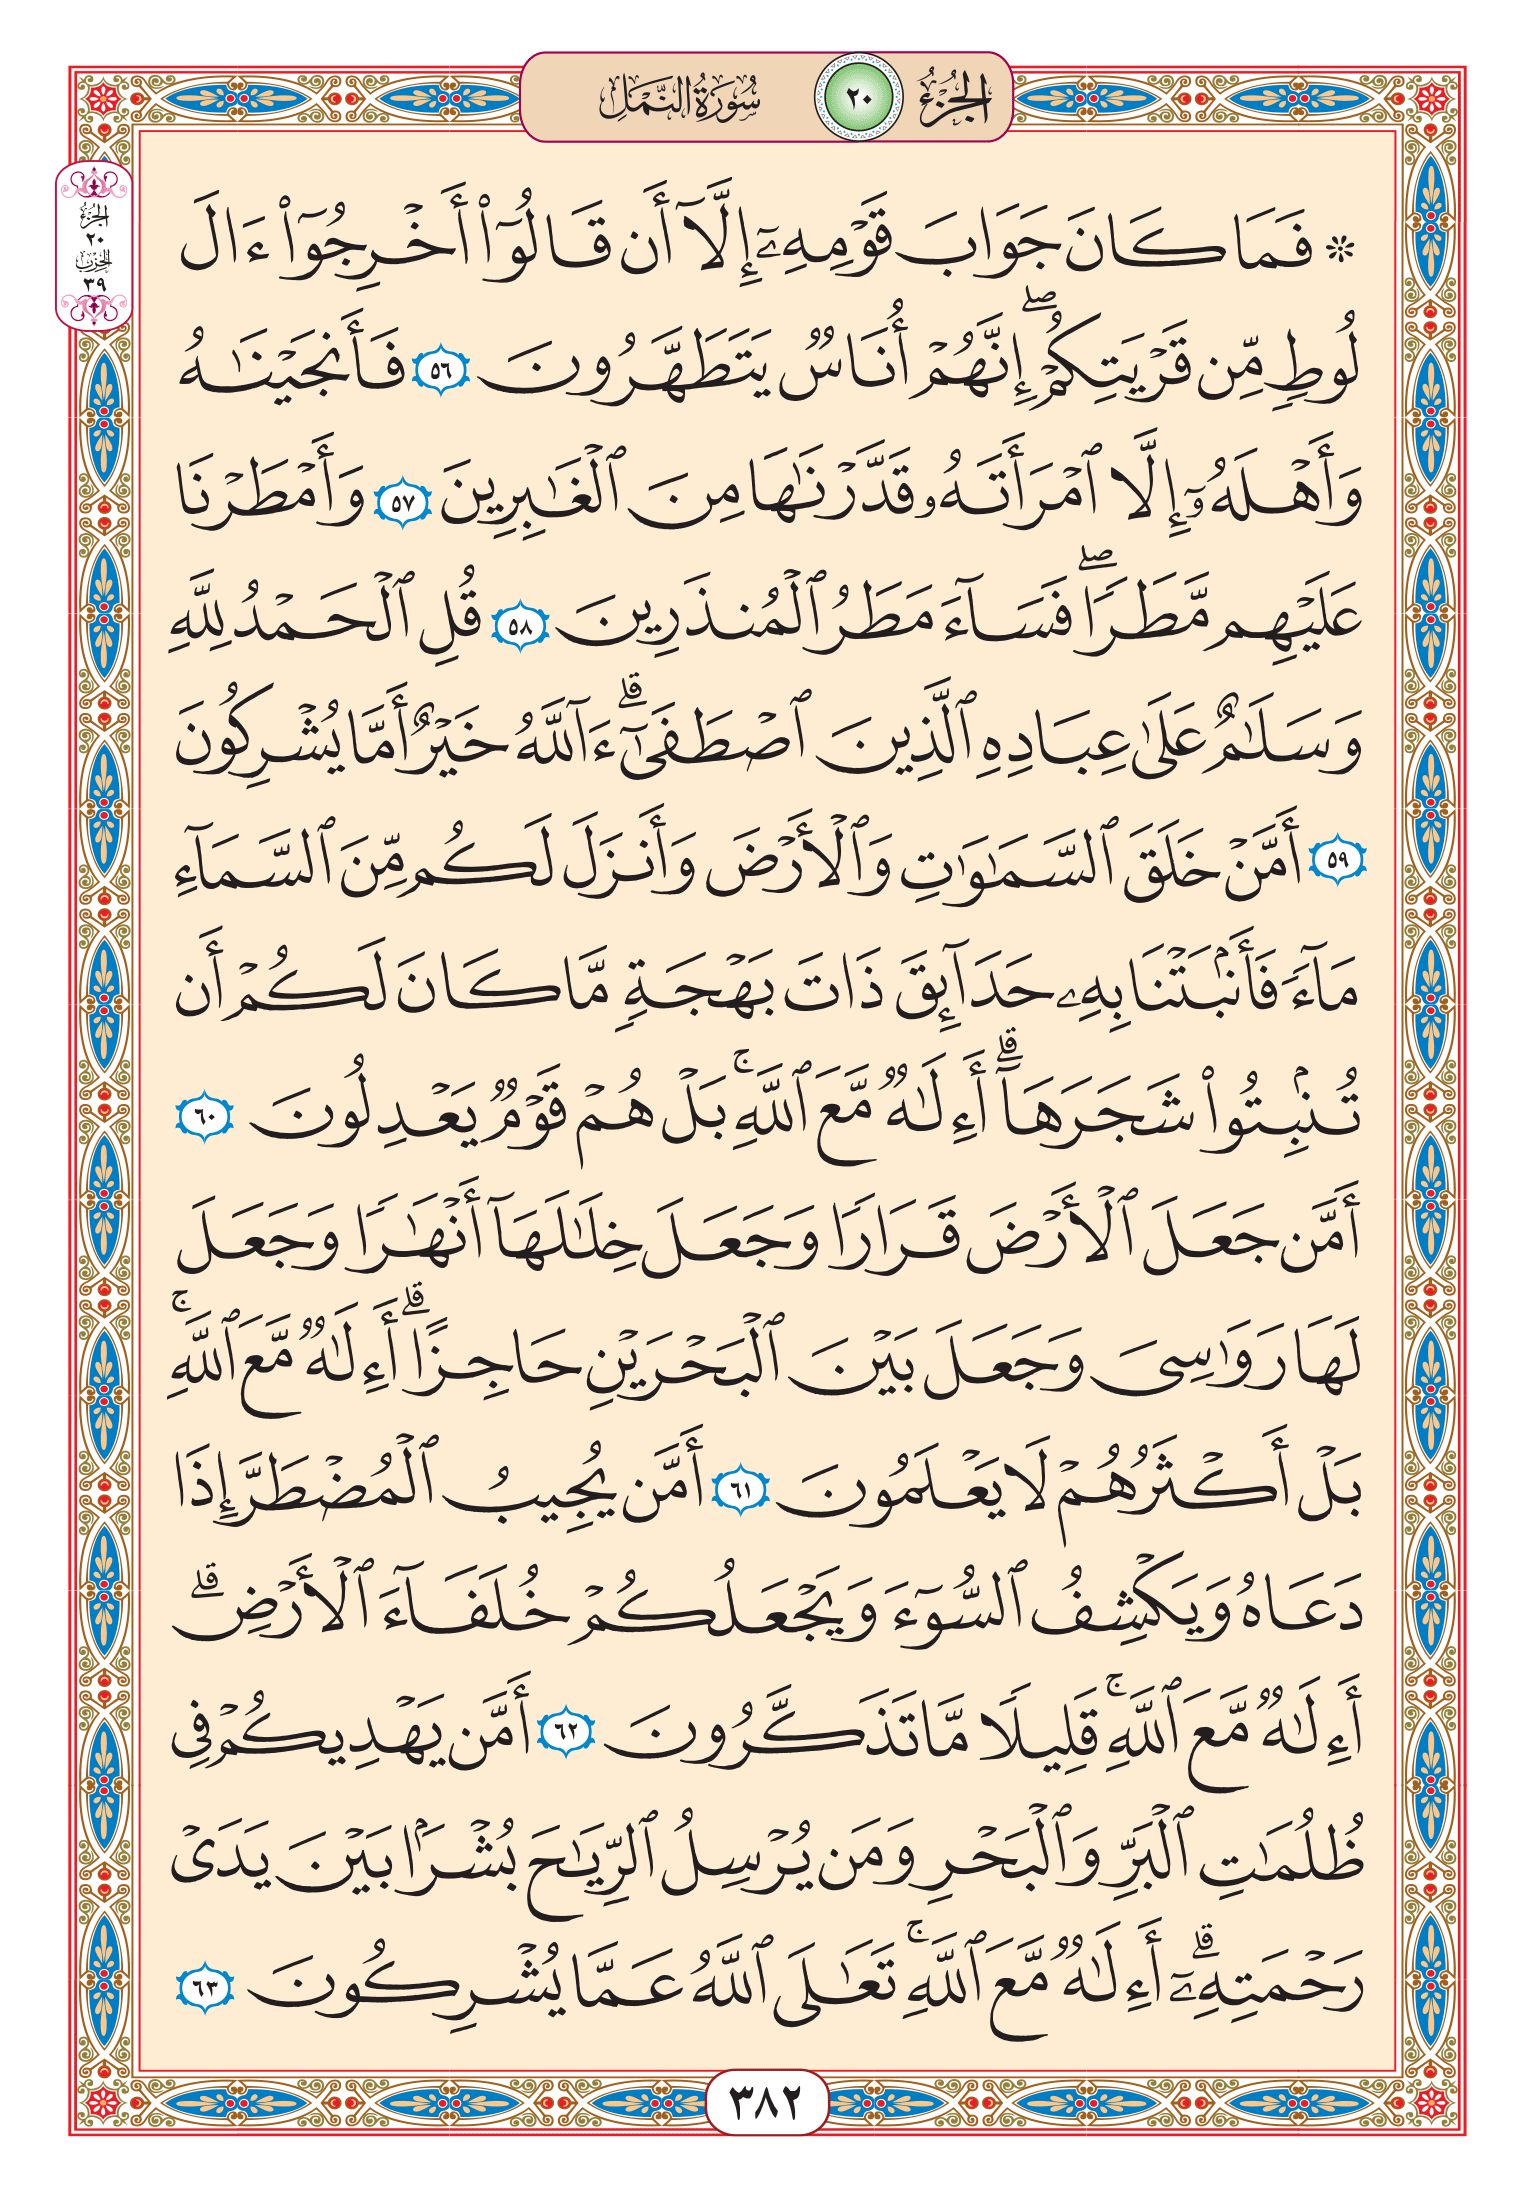 الجزء ٢٠ سورة النمل
الجزء
٢٠
الحزب
٣٩
۞ فَمَا كَانَ جَوَابَ قَوْمِهِۦٓ إِلَّآ أَن قَالُوٓا۟ أَخْرِجُوٓا۟ ءَالَ
لُوطٍ مِّن قَرْيَتِكُمْ ۖ إِنَّهُمْ أُنَاسٌ يَتَطَهَّرُونَ ٥٦ فَأَنجَيْنَـٰهُ
وَأَهْلَهُۥٓ إِلَّا ٱمْرَأَتَهُۥ قَدَّرْنَـٰهَا مِنَ ٱلْغَـٰبِرِينَ ٥٧ وَأَمْطَرْنَا
عَلَيْهِم مَّطَرًا ۖ فَسَآءَ مَطَرُ ٱلْمُنذَرِينَ ٥٨ قُلِ ٱلْحَمْدُ لِلَّهِ
وَسَلَـٰمٌ عَلَىٰ عِبَادِهِ ٱلَّذِينَ ٱصْطَفَىٰٓ ۗ ءَآللَّهُ خَيْرٌ أَمَّا يُشْرِكُونَ
٥٩ أَمَّنْ خَلَقَ ٱلسَّمَـٰوَٰتِ وَٱلْأَرْضَ وَأَنزَلَ لَكُم مِّنَ ٱلسَّمَآءِ
مَآءً فَأَنۢبَتْنَا بِهِۦ حَدَآئِقَ ذَاتَ بَهْجَةٍ مَّا كَانَ لَكُمْ أَن
تُنۢبِتُوا۟ شَجَرَهَآ ۗ أَءِلَـٰهٌ مَّعَ ٱللَّهِ ۚ بَلْ هُمْ قَوْمٌ يَعْدِلُونَ ٦٠
أَمَّن جَعَلَ ٱلْأَرْضَ قَرَارًا وَجَعَلَ خِلَـٰلَهَآ أَنْهَـٰرًا وَجَعَلَ
لَهَا رَوَٰسِىَ وَجَعَلَ بَيْنَ ٱلْبَحْرَيْنِ حَاجِزًا ۗ أَءِلَـٰهٌ مَّعَ ٱللَّهِ ۚ
بَلْ أَكْثَرُهُمْ لَا يَعْلَمُونَ ٦١ أَمَّن يُجِيبُ ٱلْمُضْطَرَّ إِذَا
دَعَاهُ وَيَكْشِفُ ٱلسُّوٓءَ وَيَجْعَلُكُمْ خُلَفَآءَ ٱلْأَرْضِ ۗ
أَءِلَـٰهٌ مَّعَ ٱللَّهِ ۚ قَلِيلًا مَّا تَذَكَّرُونَ ٦٢ أَمَّن يَهْدِيكُمْ فِى
ظُلُمَـٰتِ ٱلْبَرِّ وَٱلْبَحْرِ وَمَن يُرْسِلُ ٱلرِّيَـٰحَ بُشْرًۢا بَيْنَ يَدَىْ
رَحْمَتِهِۦٓ ۗ أَءِلَـٰهٌ مَّعَ ٱللَّهِ ۚ تَعَـٰلَى ٱللَّهُ عَمَّا يُشْرِكُونَ ٦٣
٣٨٢